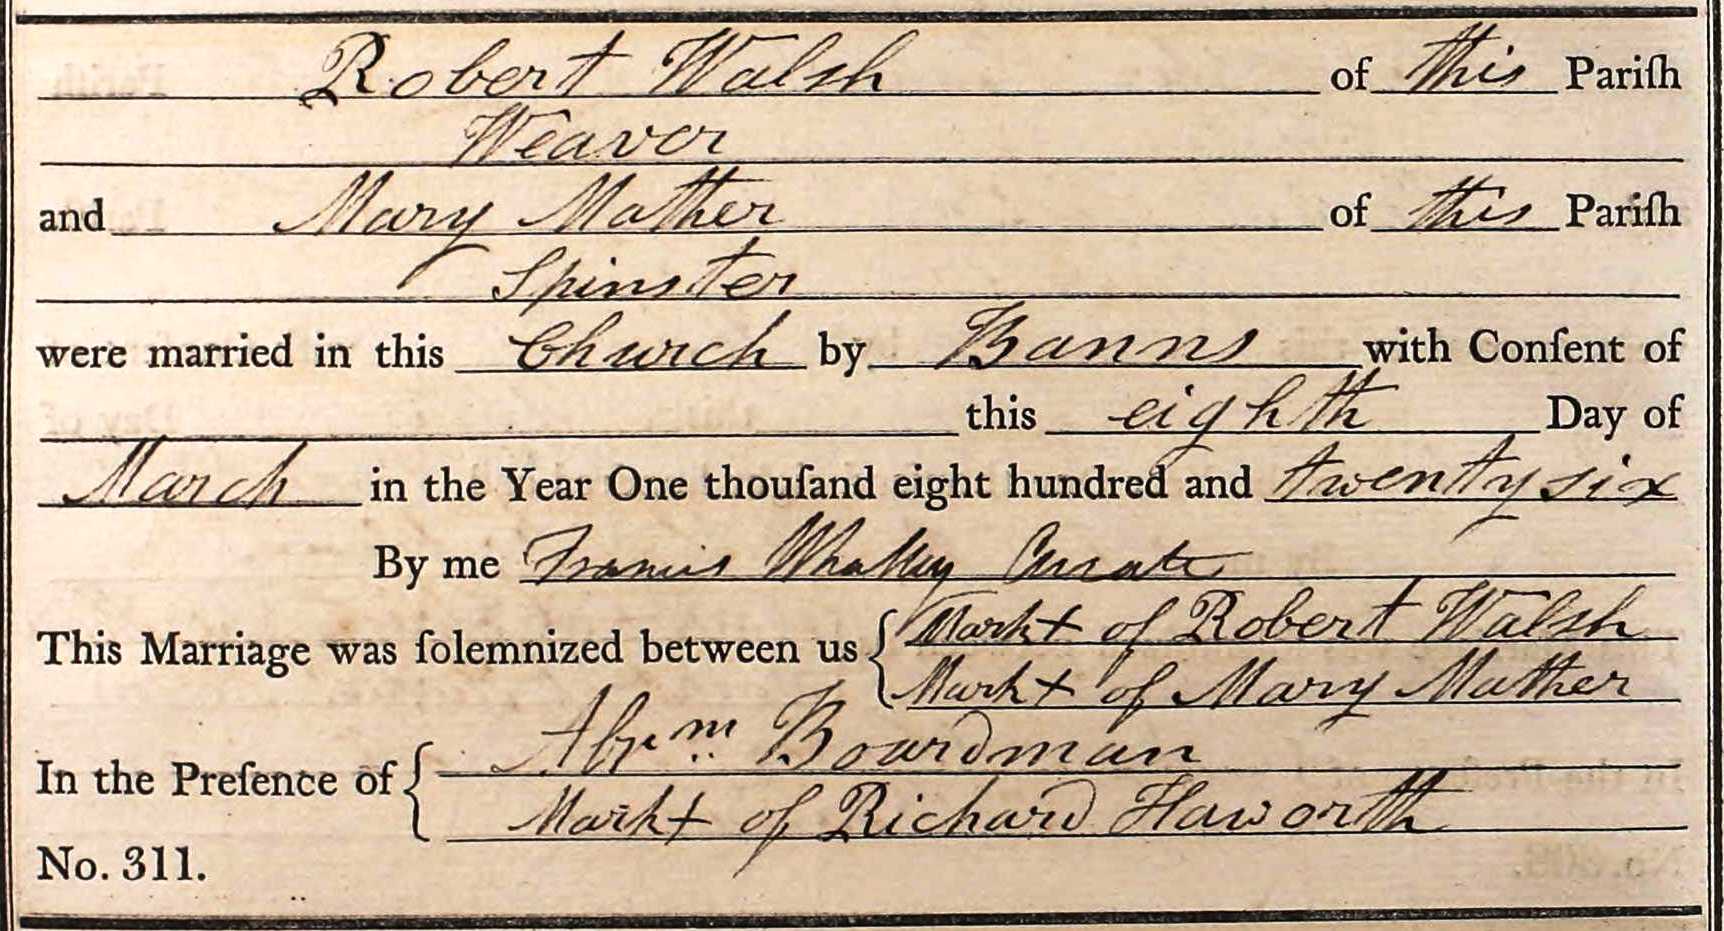 Robert Walsh of this Pariſh
Weaver
and Mary Mather of this Pariſh
Spinster
were married in this Church by Banns with Conſent of
this eighth Day of
March in the Year One thouſand eight hundred and twenty six
By me Francis Whalley Curate
This Marriage was ſolemnized between us { Mark + of Robert Walsh
Mark + of Mary Mather
In the Preſence of { Abrm Boardman
Mark + of Richard Haworth
No. 311.